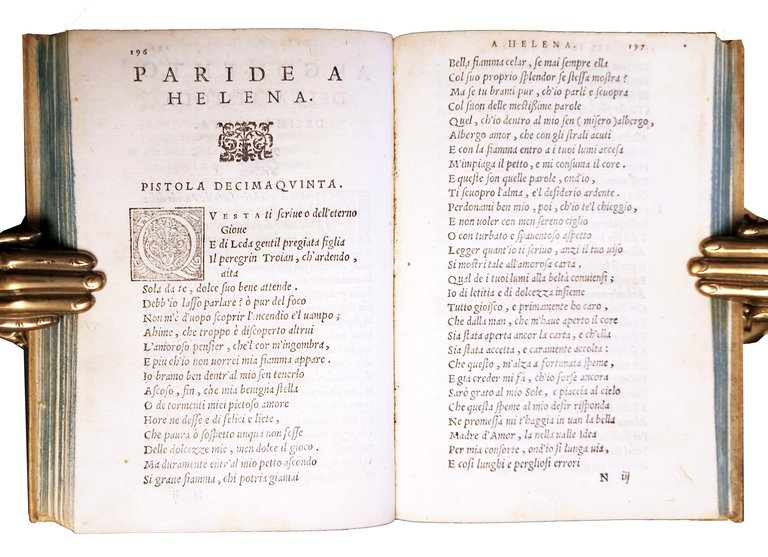 196
PARIDE A
HELENA.
PISTOLA DECIMAQVINTA.
QVESTA ti scriue o dell'eterno
Gioue
E di Leda gentil pregiata figlia
Il peregrin Troian, ch'ardendo,
aita
Sola da te, dolce suo bene attende.
Debb'io lasso parlare? ò pur del foco
Non m'è d'uopo scoprir l'incendio e'l uampo;
Ahime, che troppo è discoperto altrui
L'amoroso pensier, che'l cor m'ingombra,
E piu ch'io non uorrei mia fiamma appare.
Io bramo ben dentr'al mio sen tenerlo
Ascoso, fin, che mia benigna stella
O de tormenti miei pietoso amore
Hore ne desse e di felici e liete,
Che paura ò sospetto unqua non fesse
Delle dolcezze mie, men dolce il gioco.
Ma duramente entr'al mio petto ascondo
Si graue fiamma, chi potria giamai
ij
A HELENA. 197
Bella fiamma celar, se mai sempre ella
Col suo proprio splendor se stessa mostra?
Ma se tu brami pur, ch'io parli e scuopra
Col suon delle mestissime parole
Quel, ch'io dentro al mio sen (misero) albergo,
Albergo amor, che con gli strali acuti
E con la fiamma entro a i tuoi lumi accesa
M'impiaga il petto, e mi consuma il core.
E queste son quelle parole, ond'io,
Ti scuopro l'alma, e'l desiderio ardente.
Perdonami ben mio, poi, ch'io te'l chieggio,
E non uoler con men sereno ciglio
O con turbato e spauentoso aspetto
Legger quant'io ti scriuo, anzi il tuo uiso
Si mostri tale all'amorosa carta,
Qual de i tuoi lumi alla beltà conuiensi;
Io di letitia e di dolcezza insieme
Tutto gioisco, e primamente ho caro,
Che dalla man, che m'haue aperto il core
Sia stata aperta ancor la carta, e ch'ella
Sia stata accetta, e caramente accolta:
Che questo, m'alza a fortunata speme,
E gia creder mi fà, ch'io forse ancora
Sarò grato al mio Sole, e piaccia al cielo
Che questa speme al mio desir risponda
Ne promessa mi t'haggia in uan la bella
Madre d'Amor, la nella ualle Idea
Per mia consorte, ond'io sì lunga uia,
E così lunghi e pergliosi errori
N iij